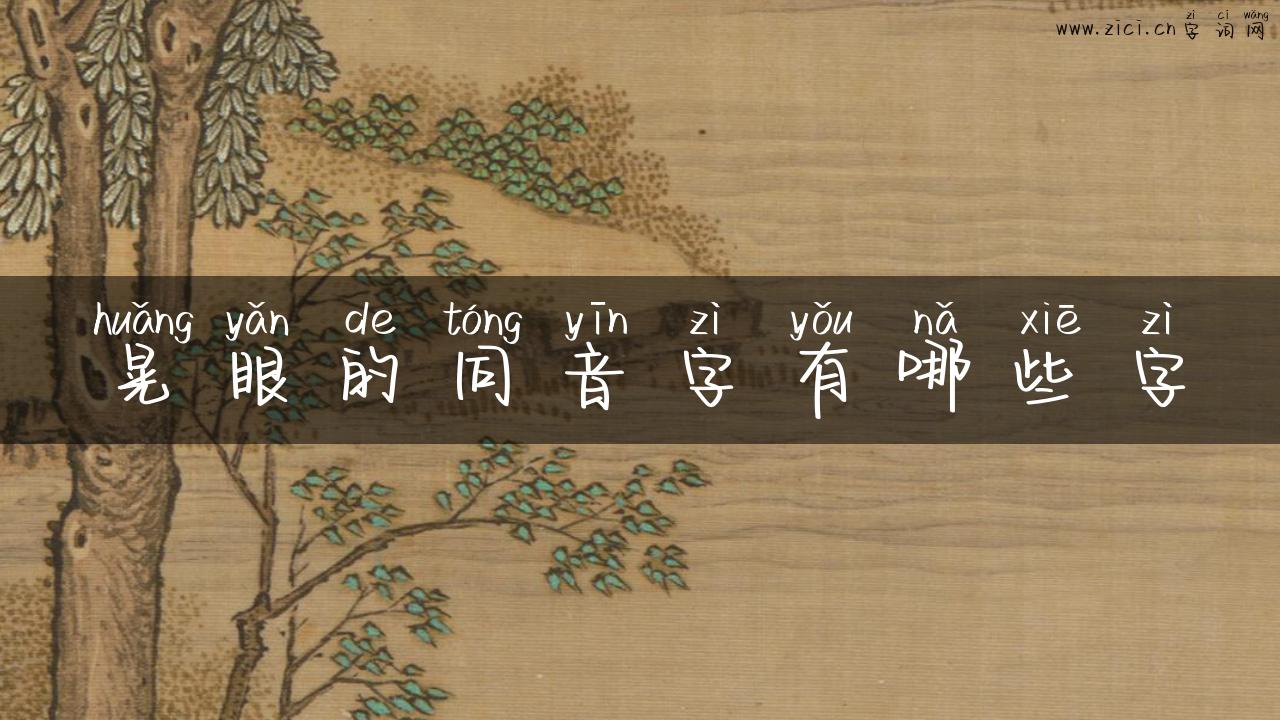 zì cí wǎng
www.zici.cn 字词网
huǎng yǎn de tóng yīn zì yǒu nǎ xiē zì
晃眼的同音字有哪些字